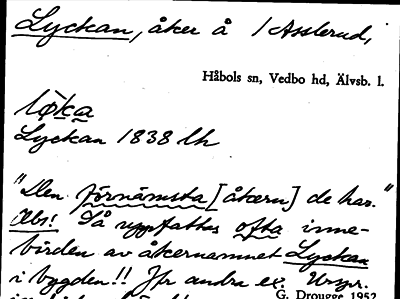 Lyckan, åker å 1 Asslerud,
Håbols sn, Vedbo hd, Älvsb. l.
lø̀ka
Lyckan 1838 lh
"Den förnämsta [åkern] de har."
Obs! Så uppfattas ofta inne-
börden av åkernamnet Lyckan
i bygden!! Jfr andra ex. Urspr.
G. Drougge 1952